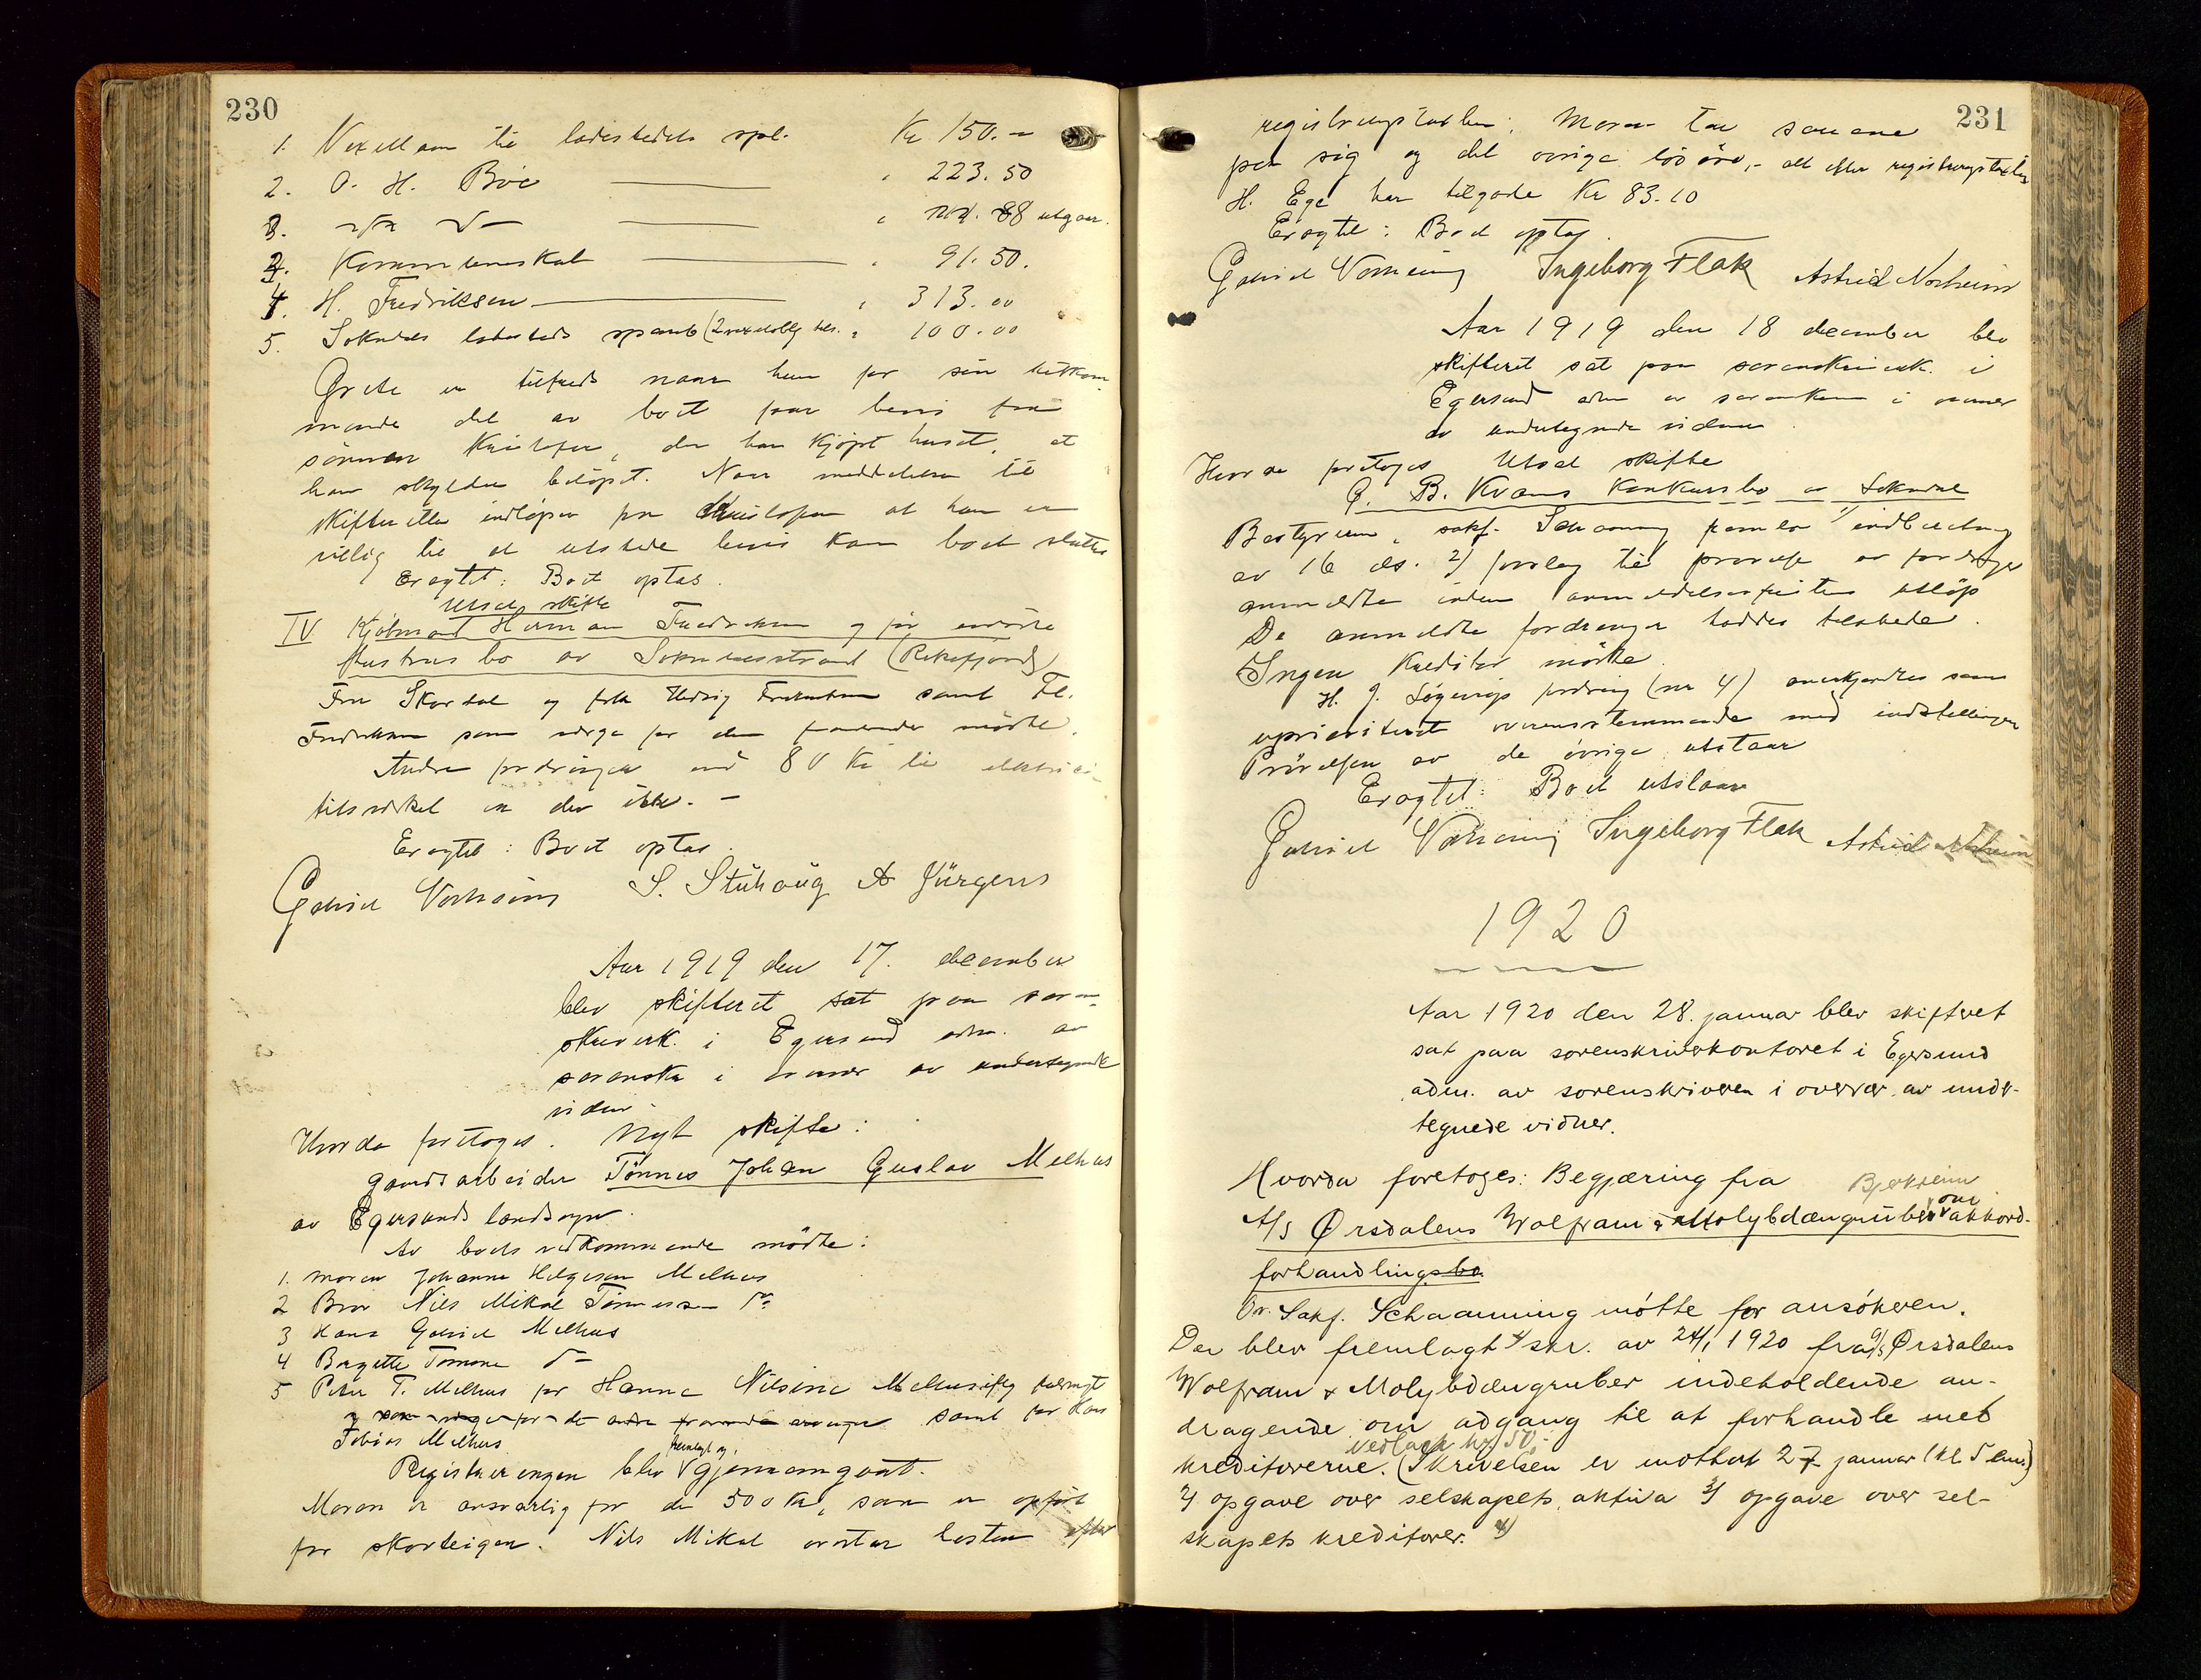 230
1. Vexellaan til ladestedets spb. Kr 150.-
2. O. H. Böe " 223.50
3. 88 utgaar.
Kommuneskat 91.50.
4. H. Fredriksen " 313.00
5. Sokndal ladesteds sparb (2 " 100.00
Grete er tilfreds naar hun for sin
mende del av boet faar bevis fra
sönnen Kristofer, der har kjöpt huset, at
han skylder belöpet. Naar meddelelse til
skifteretten indlöper fra Kristofer at han er
villig til at utstede bevis kan boet sluttes
Eragtet: Boet optas.
Utsat skifte
IV Kjöbmand Herman Fredriksen og
hustrus bo av Sokndalsstrand (Rekefjord)
Fru Skardal og frk Hedvig Fredriksen samt Fr.
Fredriksen som verge for den fraværende mödte.
Andre fordringer end 80 Kr til
er der ikke. -
Eragtet: Boet optas.
Gabriel Vorheim S. Stuhaug A Jürgens
Aar 1919 den 17. december
blev skifteret sat paa soren-
skriverk. i Egersund adm. av
sorenskr i overvær av undertegnede
vidner.
Hvorda foretoges. Nyt skifte:
gaardsarbeider Tönnes Johan Gustav Melhus
av Egersunds landsogn.
Av boets vedkommende mödte:
1. moren Johanne Helgesen Melhus
2 Bror Nils Mikal Tönnessen do
3 Hans Gabriel Melhus
4 Bergitte Tomine do
5 Peter T. Melhus for Hanna Nilsine
og som verge for de andre fraværende samt for Hans
Tobias Melhus
fremlagt og
Registreringen blev gjennemgaat.
Moren er ansvarlig for de 500 Kr, som er opfört
for skovteigen. Nils Mikal overtar hesten efter
231
registreringstaksten. Moren tar sauene
paa sig og det övrige lösöre,- alt efter registreringstaksten
H. Ege har tilgode Kr 83.10
Eragtet: Boet optas.
Gabriel Vorheim Ingeborg Flak Astrid Norheim
Aar 1919 den 18 december blev
skifteret sat paa sorenskriverk. i
Egersund adm av sorenskr i overvær
av undertegnede vidner.
Hvorda foretoges Utsat skifte
B. Kvams konkursbo av Sokndal
Bestyreren, sakf. Schaanning fremla 1) indberetning
av 16 ds. 2) forslag til prövelse av fordringer
anmeldte inden anmeldelsesfristens utlöp
De anmeldte fordringer haddes tilstede.
Ingen Kreditor mödte.
H. J. fordring (nr 4) anerkjendtes som
uprioritert overensstemmende med indstillingen
Prövelsen av de övrige utstaar
Eragtet: Boet utstaar
Gabriel Vorheim Ingeborg Flak Astrid Norheim
1920
Aar 1920 den 28. januar blev skifteret
sat paa sorenskriverkontoret i Egersund
adm. av sorenskriveren i overvær av under-
tegnede vidner.
Hvorda foretoges: Begjæring fra Bjerkreim
A/S Ørsdalens Wolfram & Molybdængruber om akkord-
forhandlingsbo.
Or. Sakf. Schaanning mötte for ansökeren.
Der blev fremlagt 1/ skr. av 24/1 1920 fra A/S Ørsdalens
Wolfram & Molybdængruber indeholdende an-
dragende om adgang til at forhandle med
vedlagt kr. 50.-
kreditorerne. (Skrivelsen er mottat 27 januar (kl 5 em.)
2/ opgave over selskapets aktiva 3/ opgave over sel-
skapets kreditorer. 4/